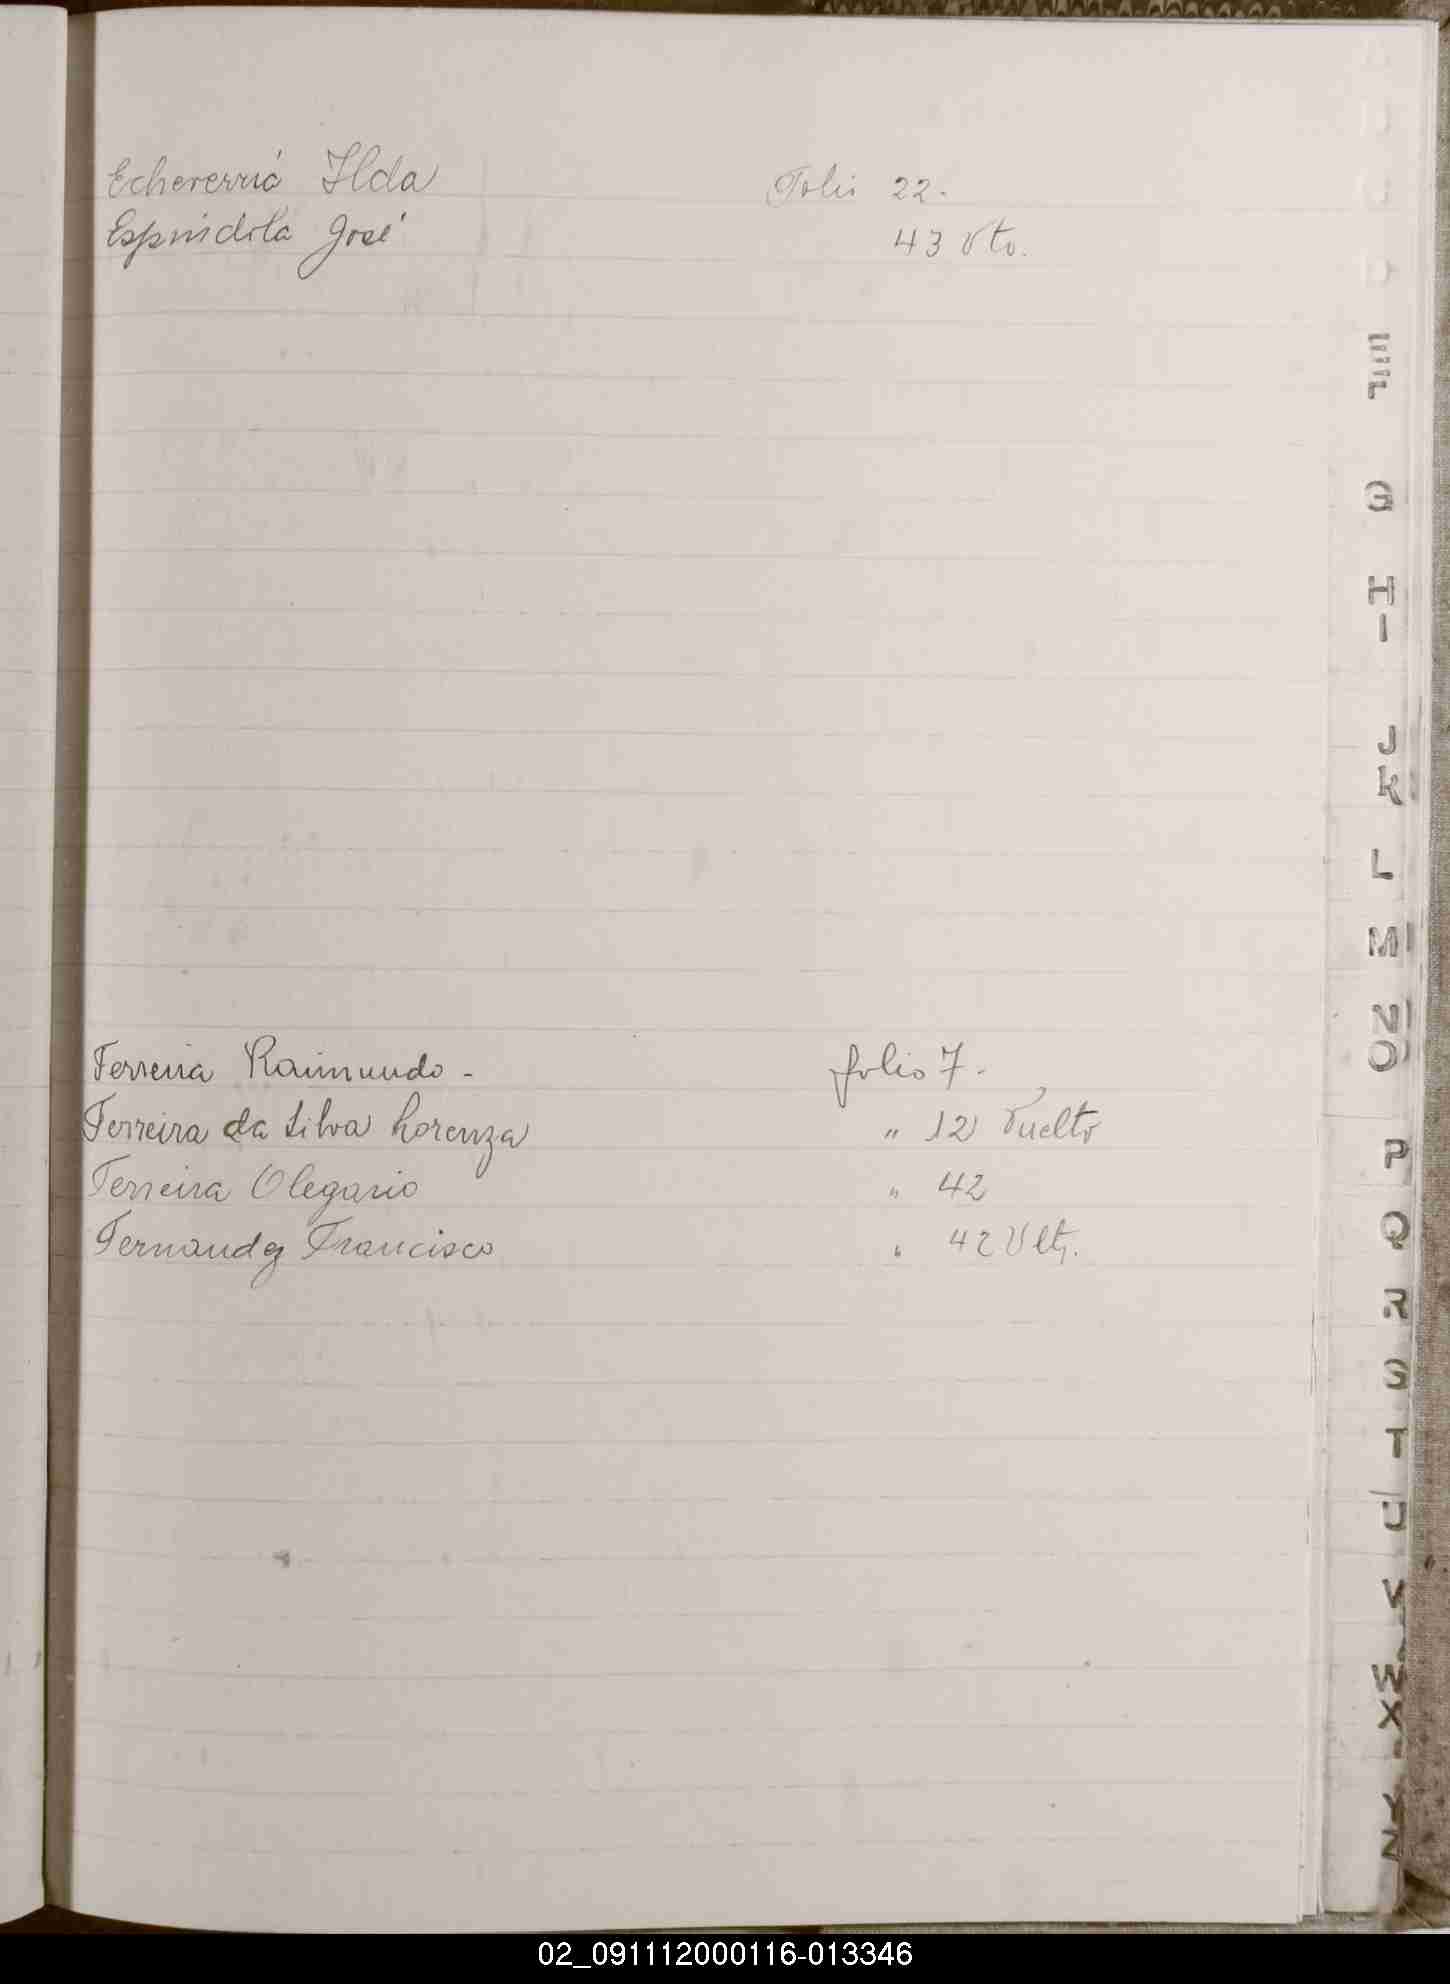 Echeverría Ilda Folio 22.
Espindola José 43 Vto.
Ferreira Raimundo - folio 7.
Ferreira da Silva Lorenza " 12 Vuelto
Ferreira Olegario " 42
Fernandez Francisco " 42 Vlto.
E
F
G
H
I
J
K
L
M
N
O
P
Q
R
S
T
U
V
W
X
Y
Z
02_091112000116-013346